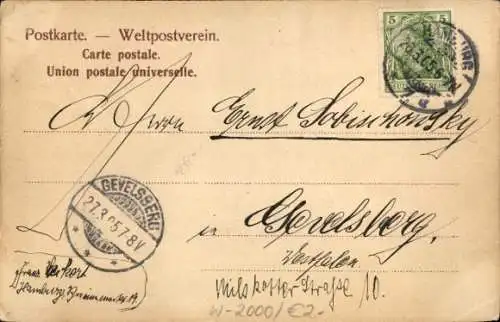 Postkarte. — Weltpostverein.
Carte postale.
Union postale universelle.
5 5
Herrn
Ernst Sobischowsky
GEVELSBERG
27.3.05.7-8V
in Gevelsberg,
Westfalen
Straße 10.
Franz
Hamburg,
W-2000/€2-